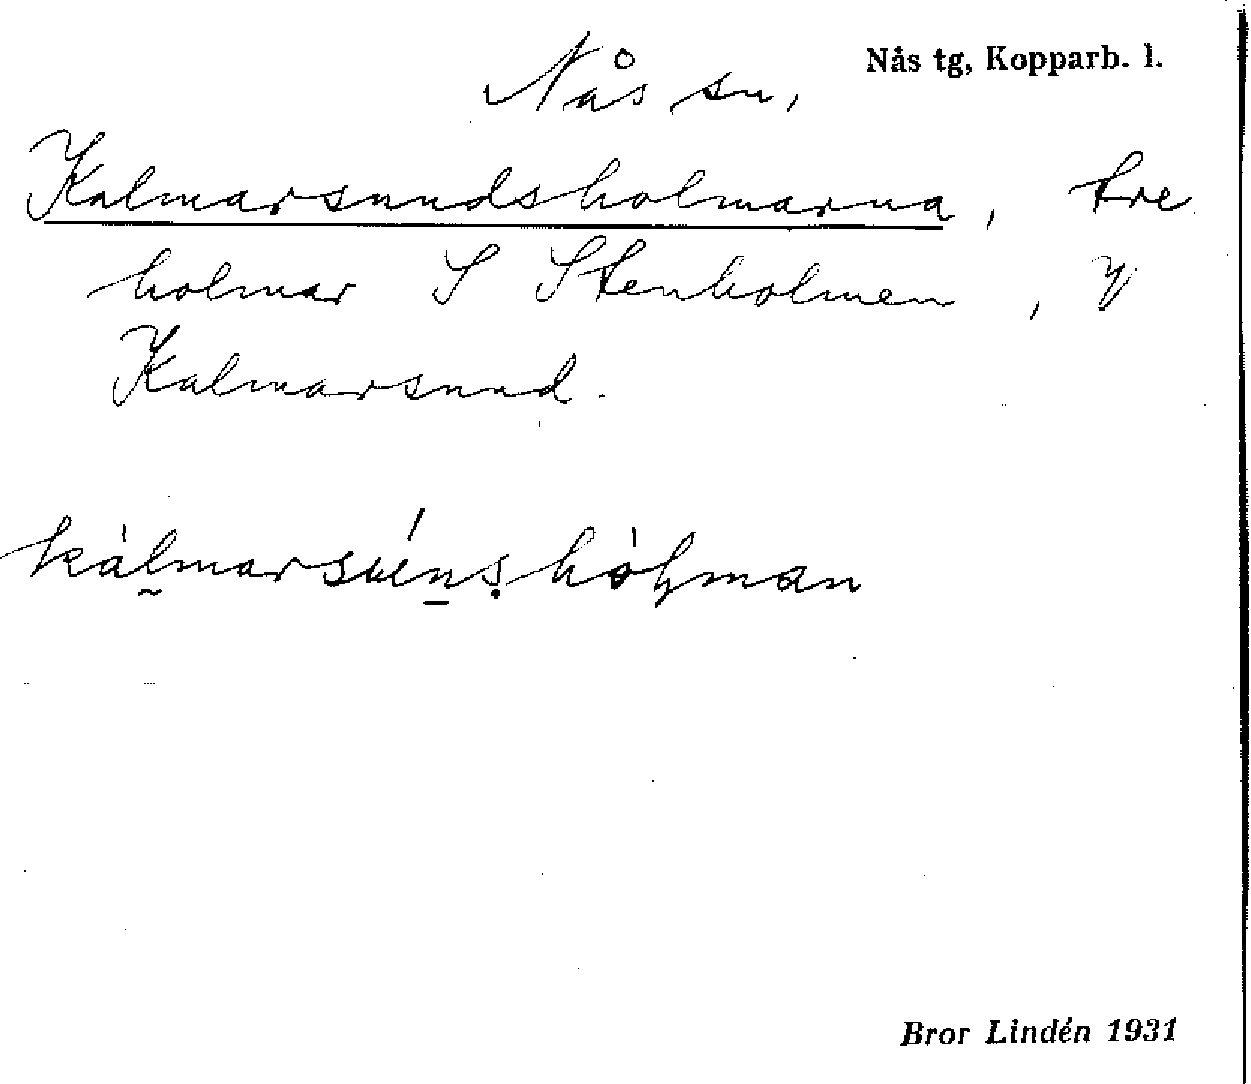 Nås tg, Kopparb. l.
Nås sn,
Kalmarsundsholmarna, tre
holmar S Stenholmen, V
Kalmarsund.
Bror Lindén 1931